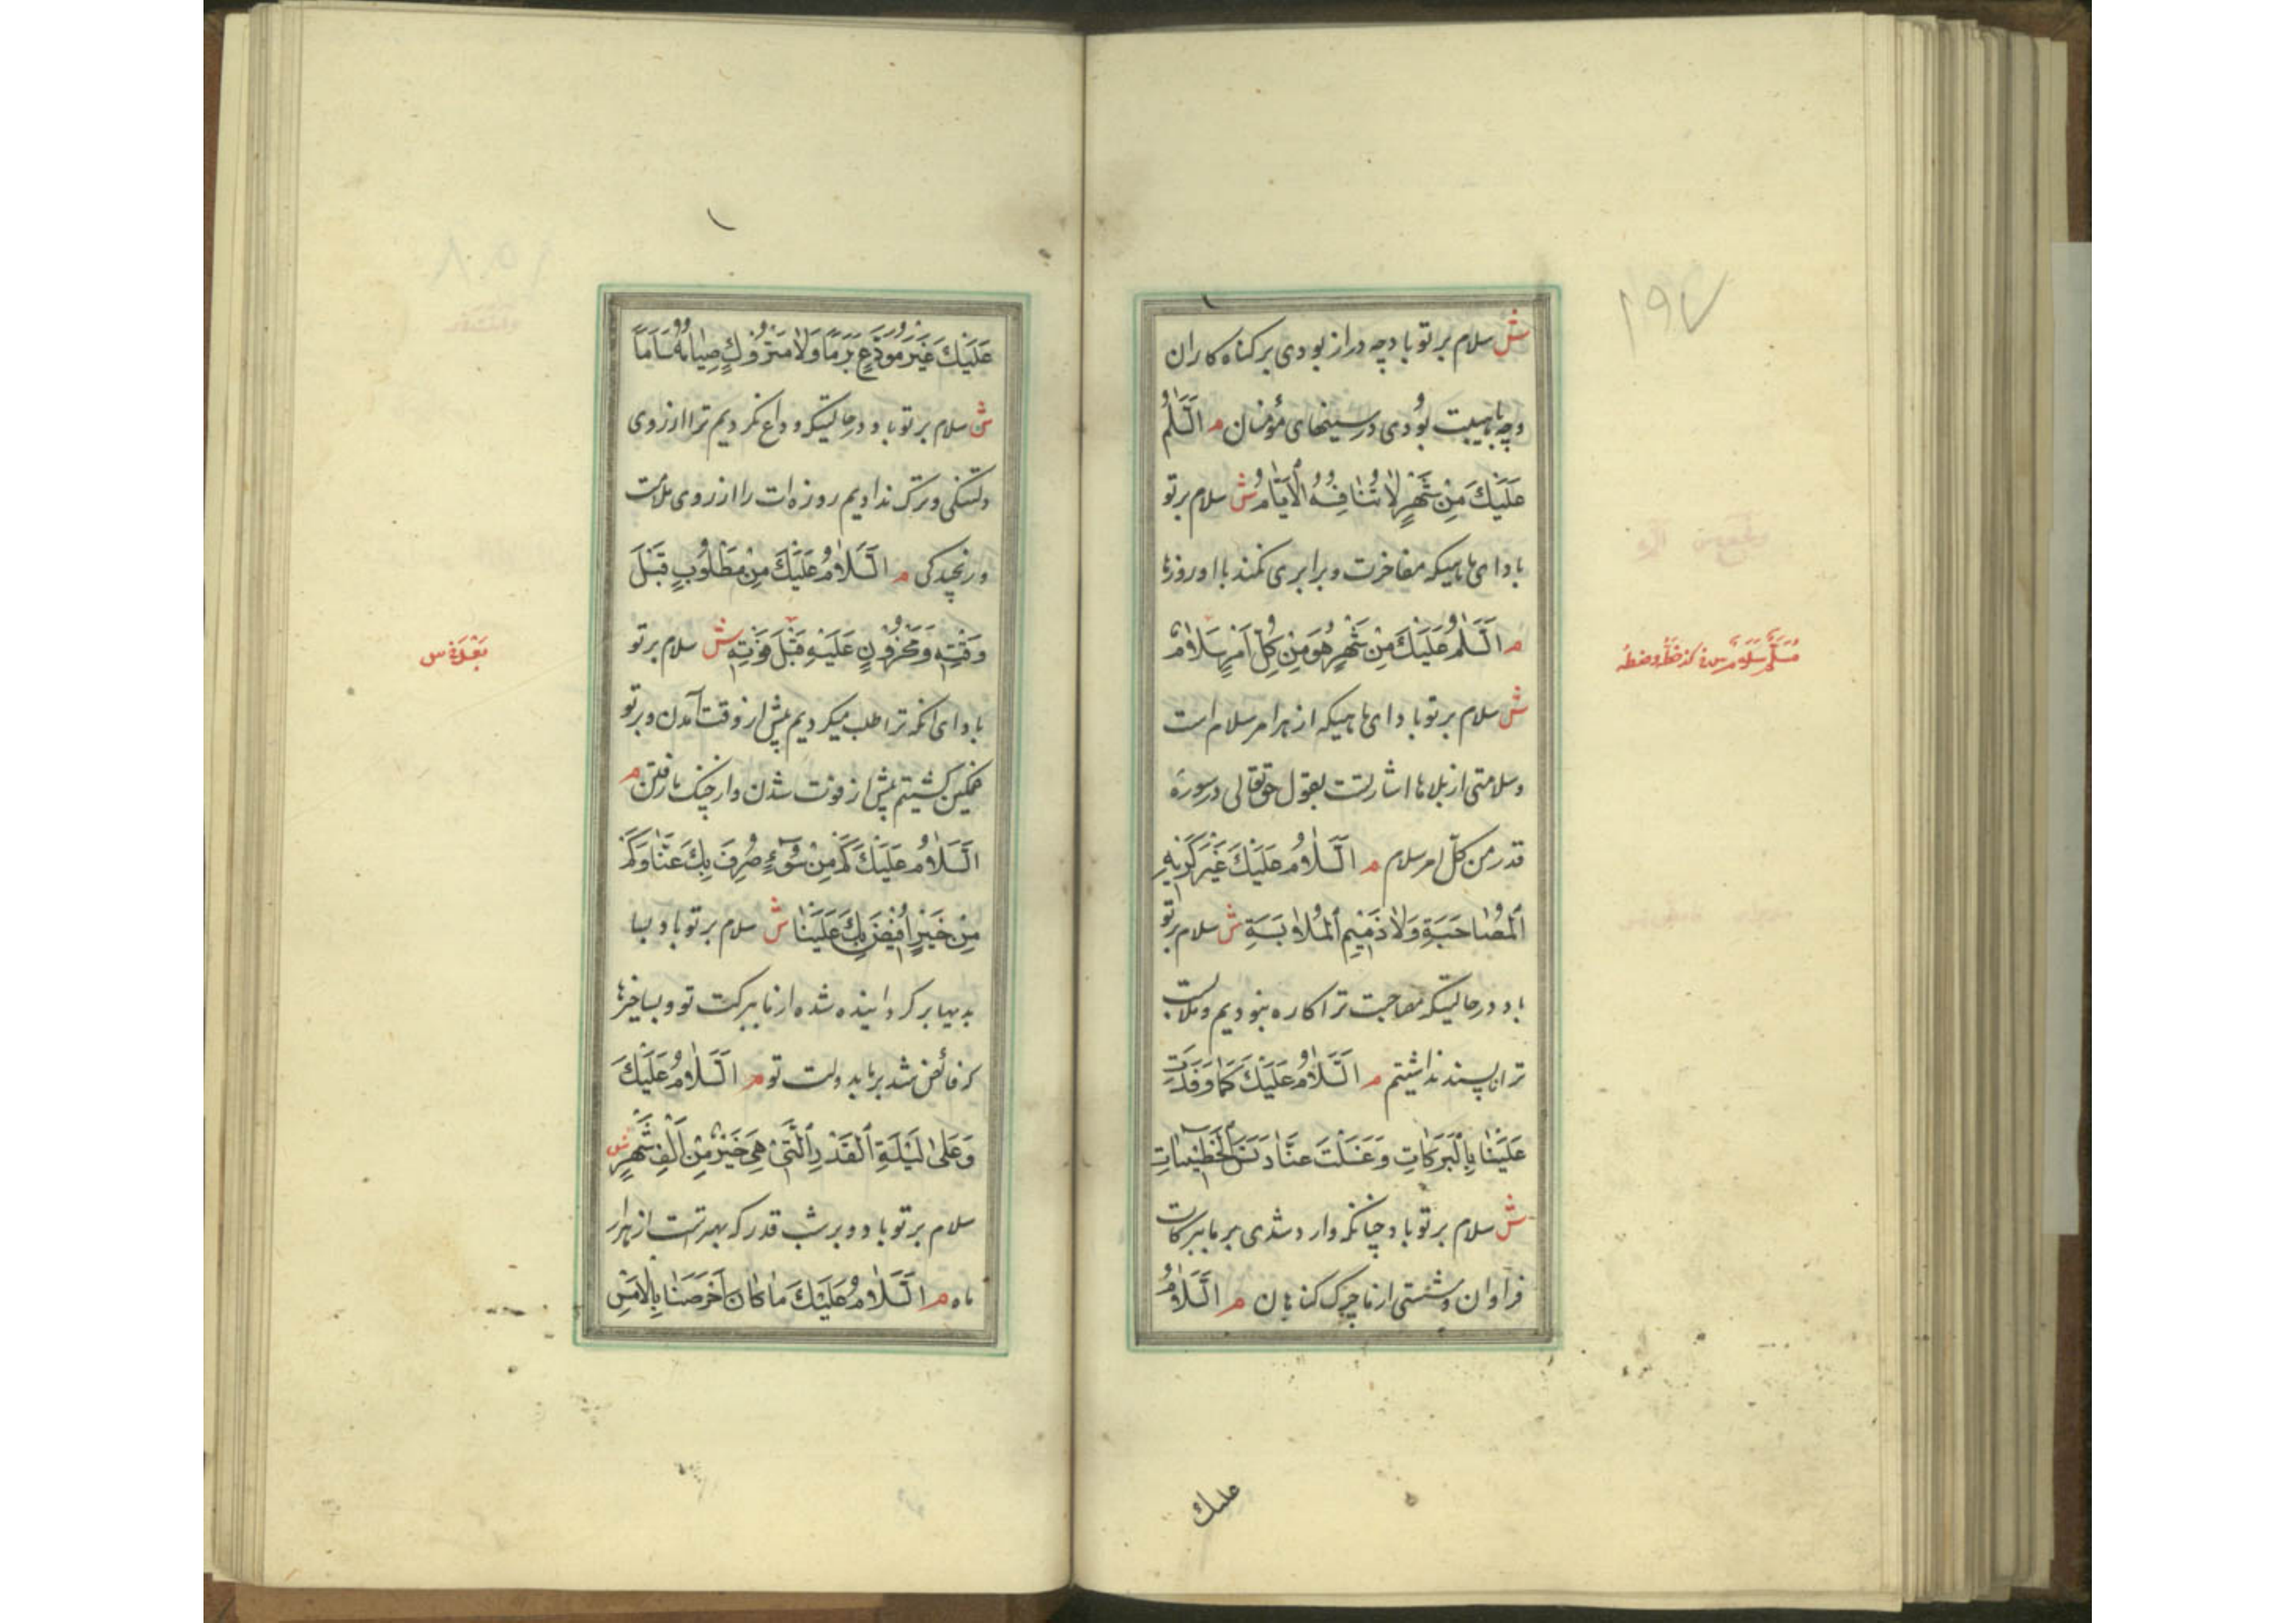 ۱۹۷
ش سلام بر تو باد چه دراز بودی بر کناه کاران
و چه با هیبت بودی در سینهای مؤمنان م اَلسَّلٰمُ
عَلَيْكَ مِنْ شَهْرٍ لٰا تُنٰافِسُهُ الْاَيّٰامُ ش سلام بر تو
باد ای ماهیکه مفاخرت و برابری نمکند با او روزها
م اَلسَّلٰمُ عَلَيْكَ مِنْ شَهْرٍ هُوَ مِنْ كُلِّ اَمْرٍ سَلٰامٌ
ش سلام بر تو باد ای ماهیکه از هر امر سلام است
و سلامتی از بلاها اشارتست بقول حقتعالی در سورهٔ
قدر من کلّ امر سلام م اَلسَّلٰامُ عَلَيْكَ غَيْرَ كَرِيْهِ
الْمُصٰاحَبَةِ وَلٰا ذَمِيْمِ الْمُلٰابَسَةِ ش سلام بر تو
باد در حالتیکه مصاحبت ترا کاره نبودیم و ملابست
ترا ناپسند نداشتیم م اَلسَّلٰامُ عَلَيْكَ كَمٰا وَفَدْتَ
عَلَيْنٰا بِالْبَرَكٰاتِ وَغَسَلْتَ عَنّٰا دَنَسَ الْخَطٖيئٰاتِ
ش سلام بر تو باد چنانکه وارد شدی بر ما ببرکات
فراوان و شستی از ما چرک کناهان م اَلسَّلٰامُ
علیک
عَلَيْكَ غَيْرَ مُوَدَّعٍ بَرَمًا وَلٰا مَتْرُوْكٍ صِيٰامُهُ سَاَمًا
ش سلام بر تو باد در حالتیکه وداع نکردیم ترا از روی
دلتنکی و ترک ندادیم روزه‌ات را از روی ملالت
و رنجیدکی م اَلسَّلٰامُ عَلَيْكَ مِنْ مَطْلُوْبٍ قَبْلَ
وَقْتِهٖ وَمَحْزُوْنٍ عَلَيْهِ قَبْلَ فَوْتِهٖ ش سلام بر تو
باد ای انکه ترا طلب میکردیم پیش از وقت آمدن و بر تو
غمکین کشتیم پیش از فوت شدن و از چنک ما رفتن م
اَلسَّلٰامُ عَلَيْكَ كَمْ مِنْ سُوْۤءٍ صُرِفَ بِكَ عَنّٰا وَكَمْ
مِنْ خَيْرٍ اُفِيْضَ بِكَ عَلَيْنٰا ش سلام بر تو باد بسا
بدیها برکردانیده شده از ما ببرکت تو و بسا خیرها
که فائض شد بر ما بدولت تو م اَلسَّلٰامُ عَلَيْكَ
وَعَلٰى لَيْلَةِ الْقَدْرِ الَّتٖي هِيَ خَيْرٌ مِنْ اَلْفِ شَهْرٍ ش
سلام بر تو باد و بر شب قدر که بهترست از هزار
ماه م اَلسَّلٰامُ عَلَيْكَ مٰا كٰانَ اَحْرَصَنٰا بِالْاَمْسِ